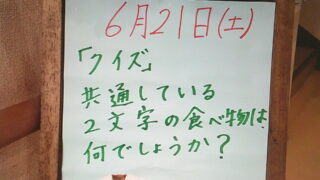 6月21日(土)
「クイズ」
共通している
2文字の食べ物は、
何でしょうか?